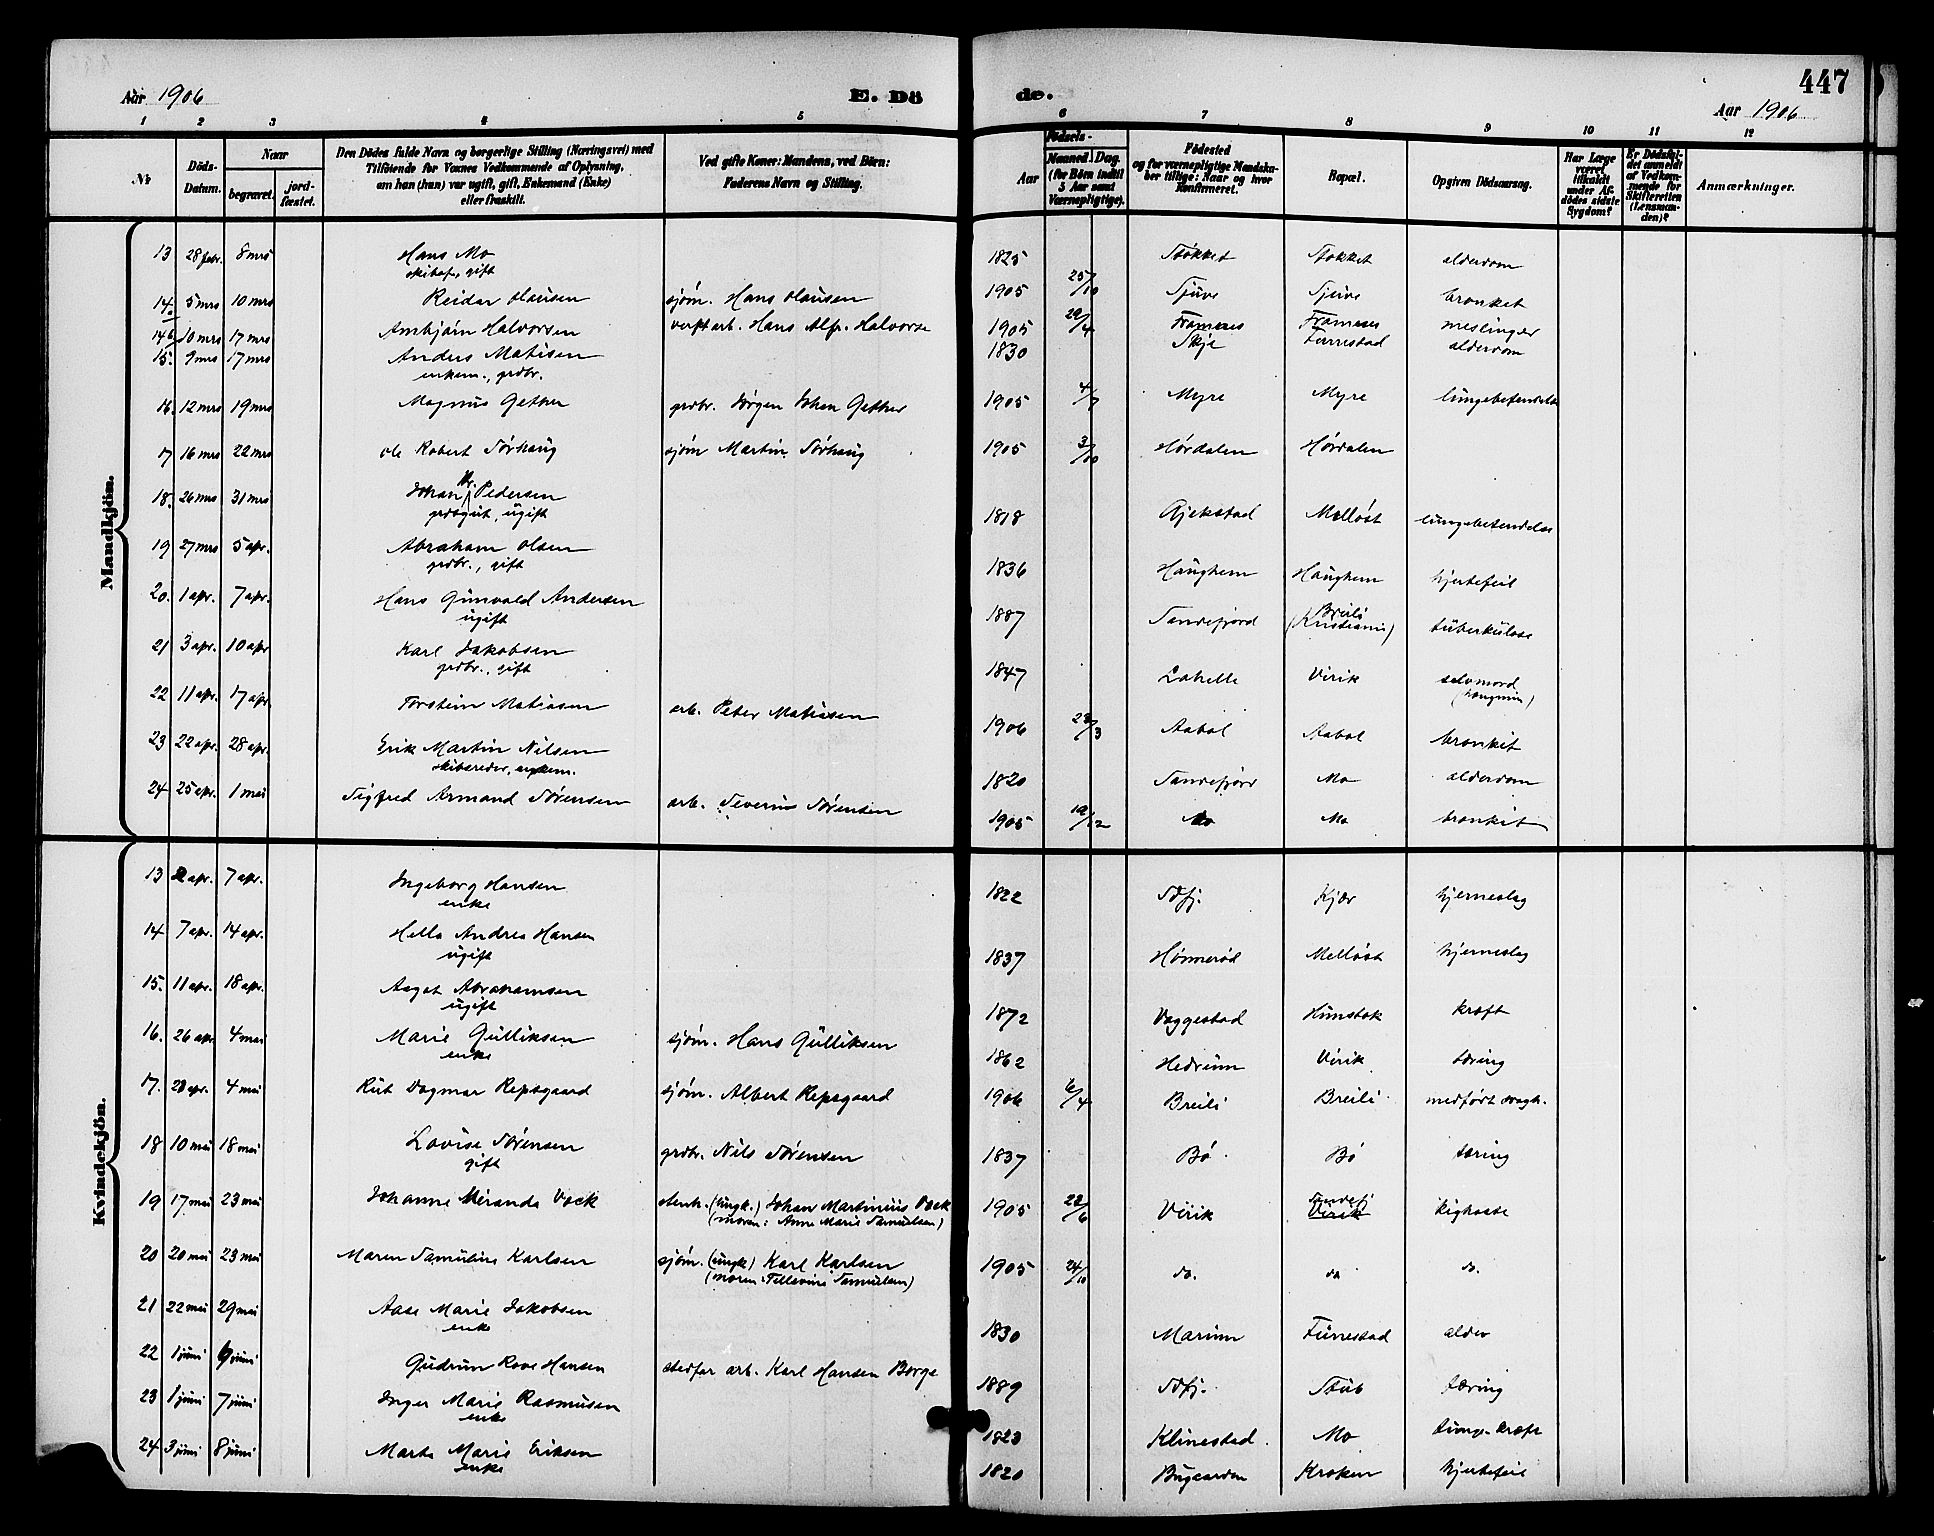 447
Aar 1906 E. Dö de. Aar 1906
1 2 3 4 5 6 7 8 9 10 11 12
Nr Döds-Datum. Naar begravet. jordfæstet. Den Dödes fulde Navn og borgerlige Stilling (Næringsvei) med Tilföiende for Voxnes Vedkommende af Oplysning, om han (hun) var ugift, gift, Enkemand (Enke) eller fraskilt. Ved gifte Koner: Mandens, ved Börn: Faderens Navn og Stilling. Födsels- Aar Maaned. Dag. (for Börn indtil 5 Aar samt Værnepligtige). Födested og for værnepligtige Mandskaber tillige: Naar og hvor Konfirmeret. Bopæl. Opgiven Dödsaarsag. Har Læge været tilkaldt under Afdödes sidste Sygdom? Er Dödsfaldet anmeldt af Vedkommende for Skifteretten (Lensmanden)? Anmærkninger.
Mandkjön.
13 28 febr. 8 mrs Hans Mo 1825 Støkket Støkket alderdom
gift
14a 5 mrs 10 mrs Reidar Olausen sjøm. Hans Olausen 1905 25/10 Tjuve Tjuve bronket
14b 10 mrs 17 mrs Arnbjørn Halvorsen verftarb. Hans Alf. Halvorse 1905 Framnes Framnes meslinger
15. 9 mrs 17 mrs Anders Matisen 1830 Skje alderdom
enkem., grdbr.
16. 12 mrs 19 mrs Magnus Gether grdbr. Jørgen Johan Gether 1905 4/7 Myre Myre lungebetendelse
17 16 mrs 22 mrs Ole Robert Sørhaug sjøm Martin Sørhaug 1905 3/10 Hørdalen Hørdalen
18. 26 mrs 31 mrs Johan Pedersen 1818 Gjekstad Melløst lungebetendelse
ugift
19 27 mrs 5 apr. Abraham Olsen 1836 Haughem Haughem hjertefeil
grdbr., gift
20. 1 apr. 7 apr. Hans Gunvald Andersen 1887 Sandefjord Breili (Kristiania) tuberkulose
ugift
21 3 apr. 10 apr Karl Jakobsen 1847 Virik selvmord
grdbr., gift
22 11 apr. 17 apr. Torstein Matiasen arb. Peter Matiasen 1906 Aabol Aabol bronkit
23 22 apr. 28 apr. Erik Martin Nilsen 1820 Sandefjord Mo alderdom
skibsreder, enkem.
24 25 apr. 1 mai Sigfred Armand Sørensen arb. Severin Sørensen 1905 19/12 Mo Mo bronkit
Kvindekjön.
13 2 apr. 7 apr. Ingeborg Hansen 1822 Sdfj. Kjær hjerneslag
enke
14 7 apr. 14 apr. Hella Andrea Hansen 1837 Hønnerød Melløst hjerneslag
ugift
15. 11 apr. 18 apr. Aagot Abrahamsen 1872 Vaggestad Hunstok kræft
ugift
16. 26 apr 4 mai Marie Gulliksen sjøm. Hans Gulliksen 1862 Hedrum Virik tæring
enke
17. apr. 4 mai Rut Dagmar Repsgaard sjøm. Albert Repsgaard 1906 6/4 Breili Breili medført svagh.
18 10 mai 18 mai Lovise Sørensen grdbr. Nils Sørensen 1837 Bø Bø tæring
gift
19 17 mai 23 mai Johanne Miranda Vock stenh. (ungk.) Johan Martinius Vock 1905 Virik Sandefj Virik kighoste
(moren: Anne Marie Samuelsen)
20 20 mai 23 mai Maren Samuline Karlsen sjøm. (ungk) Karl Karlsen 1905 24/10 do. do do.
(moren Samuelsen)
21 22 mai 29 mai Aase Marie Jakobsen 1830 Marum alder
enke
22 1 juni 6 juni Gudrun Rove Hansen stedfar arb. Karl Hansen Borge 1889 Sdfj. Stub tæring
23 1 juni 7 juni Inger Marie Rasmusen 1823 Klinestad Mo kræft
enke
24 3 juni 8 juni Marte Marie Eriksen 1820 Bugaarden Kroken hjertefeil
enke